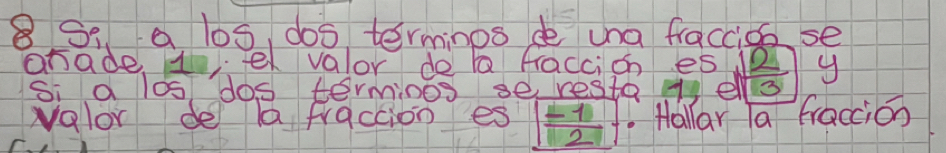 8 Si a los dos términos de una fracción se
añade 1, el valor de la fracción es 2/3 y
si a los dos términos se resta 1, el
valor de la fracción es -1/2. Hallar la fracción.